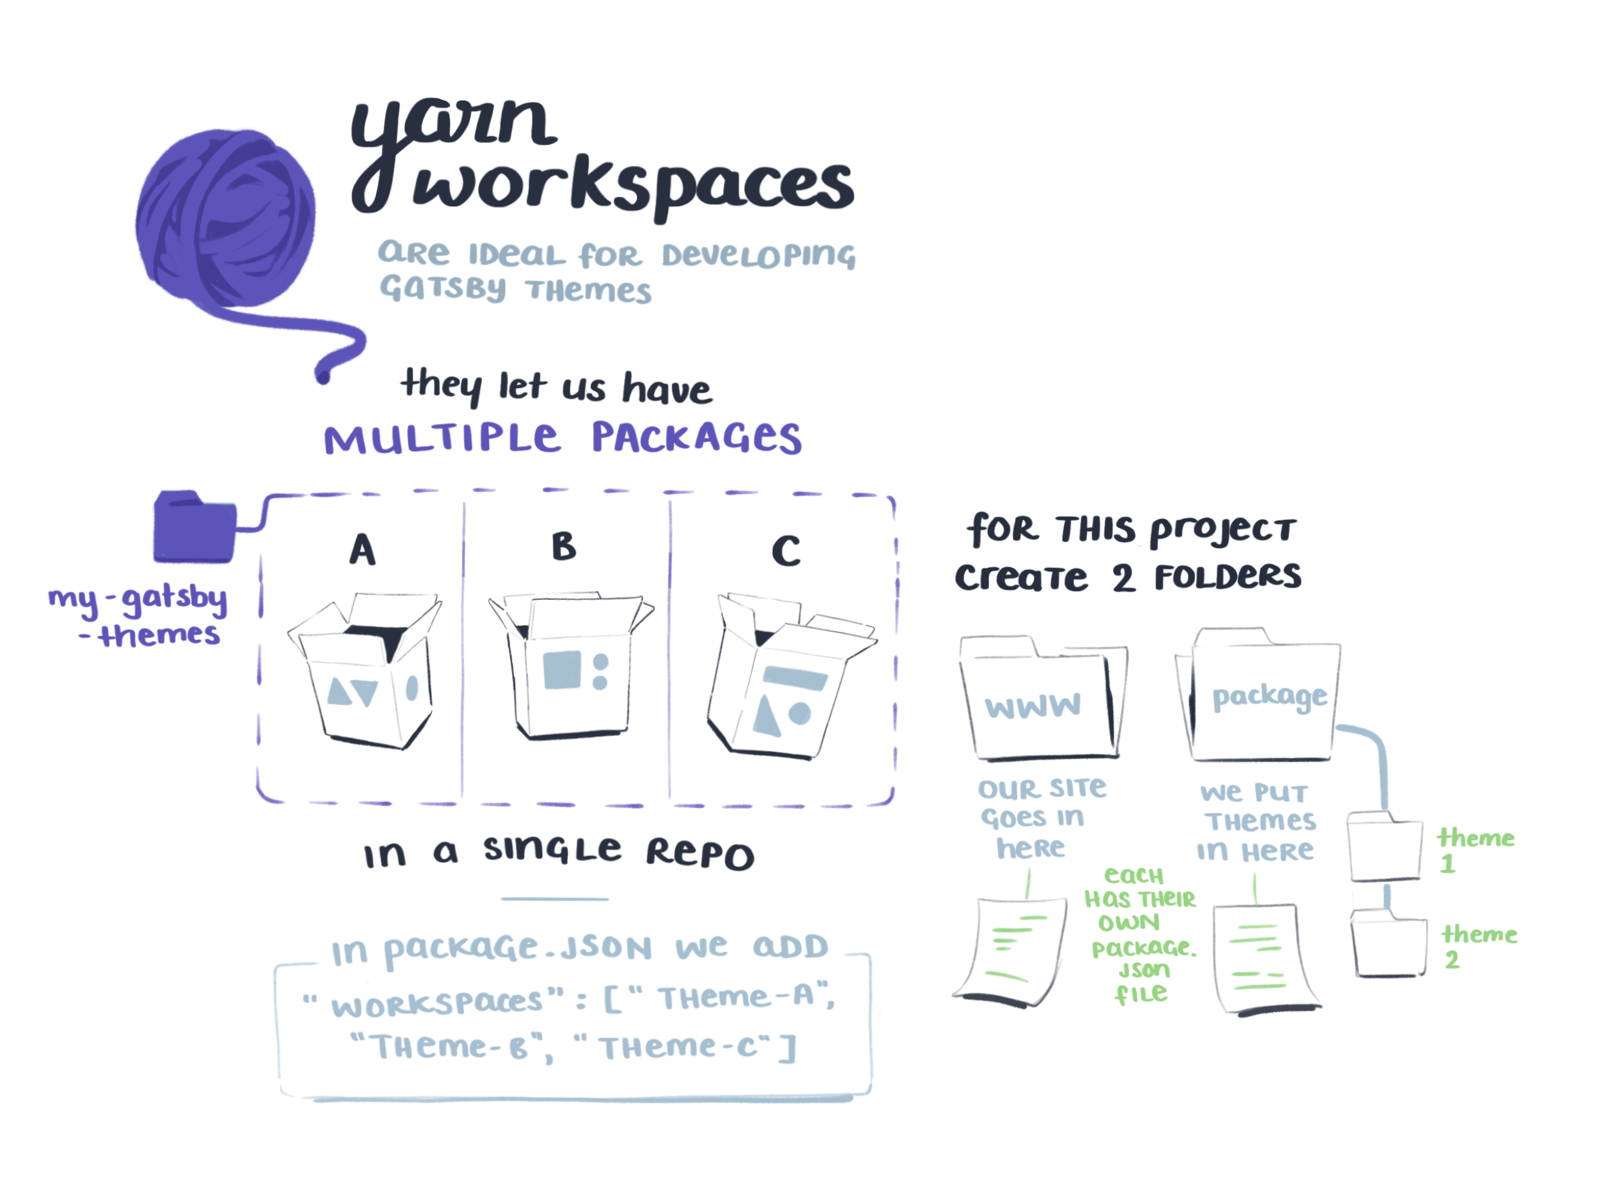 yarn
workspaces
are ideal for developing
gatsby themes
they let us have
MULTIPLE PACKAGES
my-gatsby
-themes
A
B
C
in a single repo
in package.json we add
"workspaces": ["theme-A",
"theme-B", "theme-C"]
for this project
create 2 folders
www
package
our site
goes in
here
we put
themes
in here
each
has their
own
package.
json
file
theme
1
theme
2